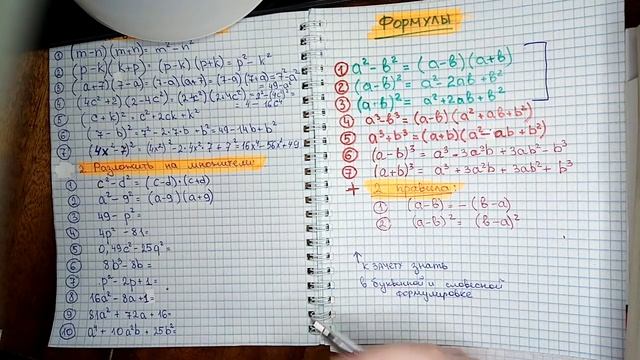 ① (m-n)(m+n)= m²-n²
② (p-k)(k+p)= (p-k)(p+k)= p²-k²
③ (a+7)(7-a)=(7-a)(a+7)=(7-a)(7+a)=7²-a²
=49-a²
④ (4c²+2)(2-4c²)=
=4-16c⁴
⑤ (c+k)²= c²+2ck+k²
⑥ (7-b)²=7²-2·7·b+b²=49-14b+b²
⑦ (4x²-7)²=(4x²)²-2·4x²·7+7²=16x⁴-56x²+49
2. Разложить на множители:
① c²-d²= (c-d)·(c+d)
② a²-9²= (a-9)(a+9)
③ 49-p²=
④ 4p²-81=
⑤ 0,49c²-25q²=
⑥ 8b³-8b=
⑦ p²-2p+1=
⑧ 16a²-8a+1=
⑨ 81a²+72a+16=
⑩ +10a²b+25b²=
Формулы
① a²-b²=(a-b)(a+b)
② (a-b)²= a²-2ab+b²
③ (a+b)²= a²+2ab+b²
④ a³-b³=(a-b)(a²+ab+b²)
⑤ a³+b³=(a+b)(a²-ab+b²)
⑥ (a-b)³= a³-3a²b+3ab²-b³
⑦ (a+b)³= a³+3a²b+3ab²+b³
+ 2 правила:
① (a-b)=-(b-a)
② (a-b)²=(b-a)²
↑ к зачету знать
в буквенной и словесной
формулировке